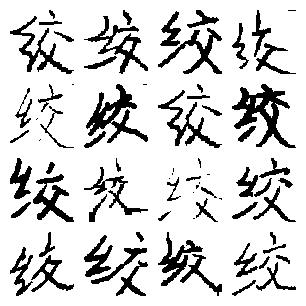 绞绞绞绞
绞绞绞绞
绞绞绞绞
绞绞绞绞